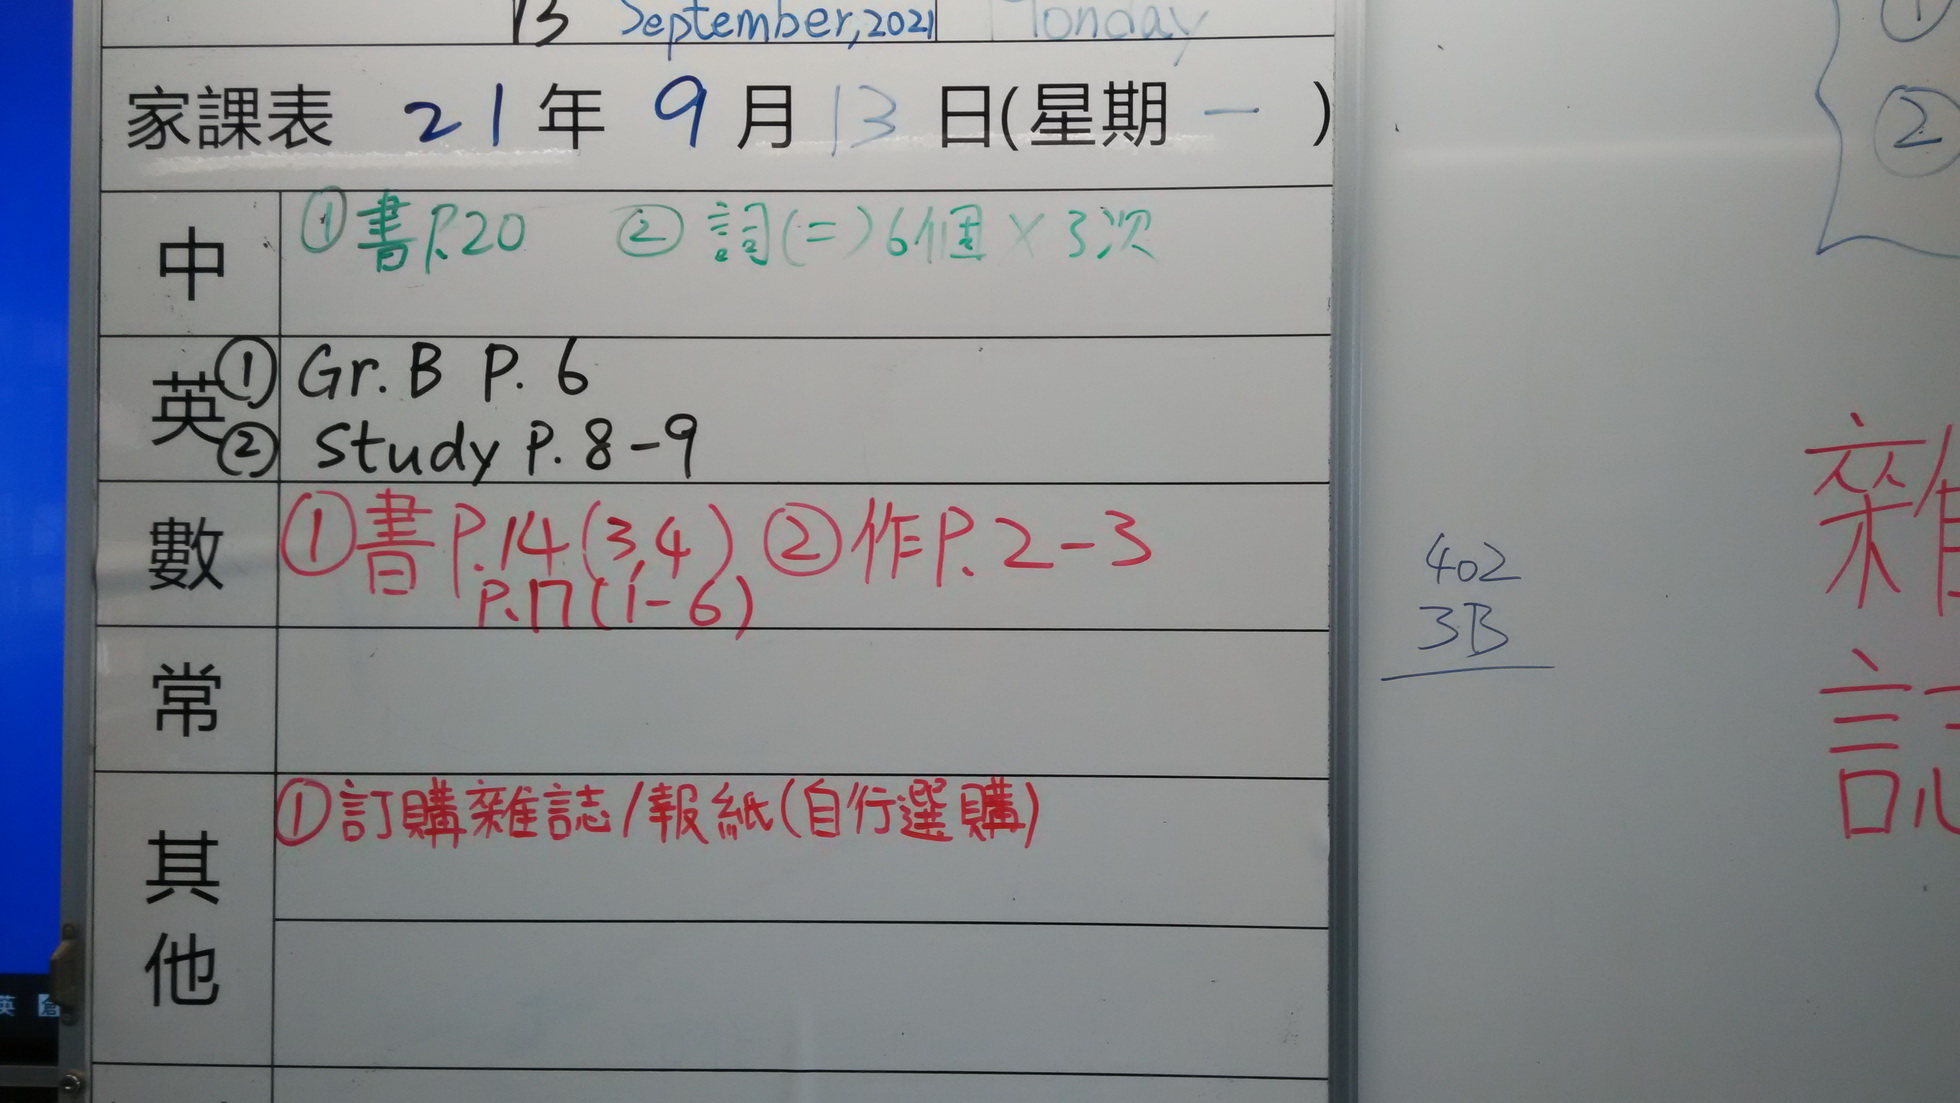 13 September, 2021 Monday
家課表 21年9月13日(星期一)
中 ①書P.20 ②詞(二)6個×3次
英 ① Gr. B P. 6
② Study P. 8-9
數 ①書P.14(3,4) ②作P.2-3
P.17(1-6)
常
其他 ①訂購雜誌/報紙(自行選購)
402
3B
①
②
雜
誌
英 倉